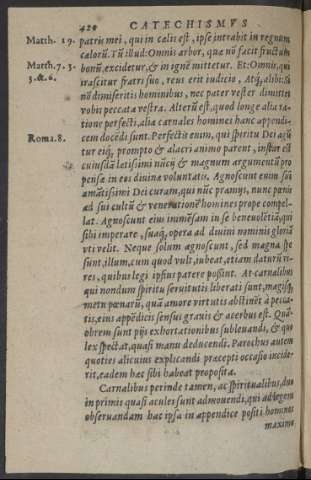 420 CATECHISMVS
Matth. 19. patris mei, qui in cœlis est, ipse intrabit in regnum
cælorũ. Tũ illud: Omnis arbor, quæ nõ facit fructum
Matth. 7. 3. bonũ, excidetur, & in ignẽ mittetur. Et: Omnis, qui
3. & 6. irascitur fratri suo, reus erit iudicio, Atq́, alibi: Si
nõ dimiseritis hominibus, nec pater vester dimittet
vobis peccata vestra. Alterũ est, quod longe alia ra-
tione perfecti, alia carnales homines hanc appendi-
Roma. 8. cem docẽdi sunt. Perfectis enim, qui spiritu Dei agũ
tur eiq́, prompto & alacri animo parent, instar est
cuiusdã lætissimi nũcij & magnum argumentũ pro
pensæ in eos diuinæ voluntatis. Agnoscunt enim sui
amãtissimi Dei curam, qui nũc præmijs, nunc pœnis
ad sui cultũ & venerationẽ homines prope compel-
lat. Agnoscunt eius immẽsam in se beneuolẽtiã, qui
sibi imperare, suaq́, opera ad diuini nominis gloriã
vti velit. Neque solum agnoscunt, sed magna spe
sunt, illum, cum quod vult, iubeat, etiam daturũ vi-
res, quibus legi ipsius parere possint. At carnalibus
qui nondum spiritu seruitutis liberati sunt, magisq́,
metu pœnarũ, quã amore virtutis abstinẽt à pecca-
tis, eius appẽdicis sensus grauis & acerbus est. Quã-
obrem sunt pijs exhortationibus subleuandi, & quo
lex spectat, quasi manu deducendi. Parochus autem
quoties alicuius explicandi præcepti occasio incide-
rit, eadem hæc sibi habeat proposita.
Carnalibus perinde tamen, ac spiritualibus, duo
in primis quasi aculei sunt admouendi, qui ad legem
obseruandam hac ipsa in appendice positi homines
maxime